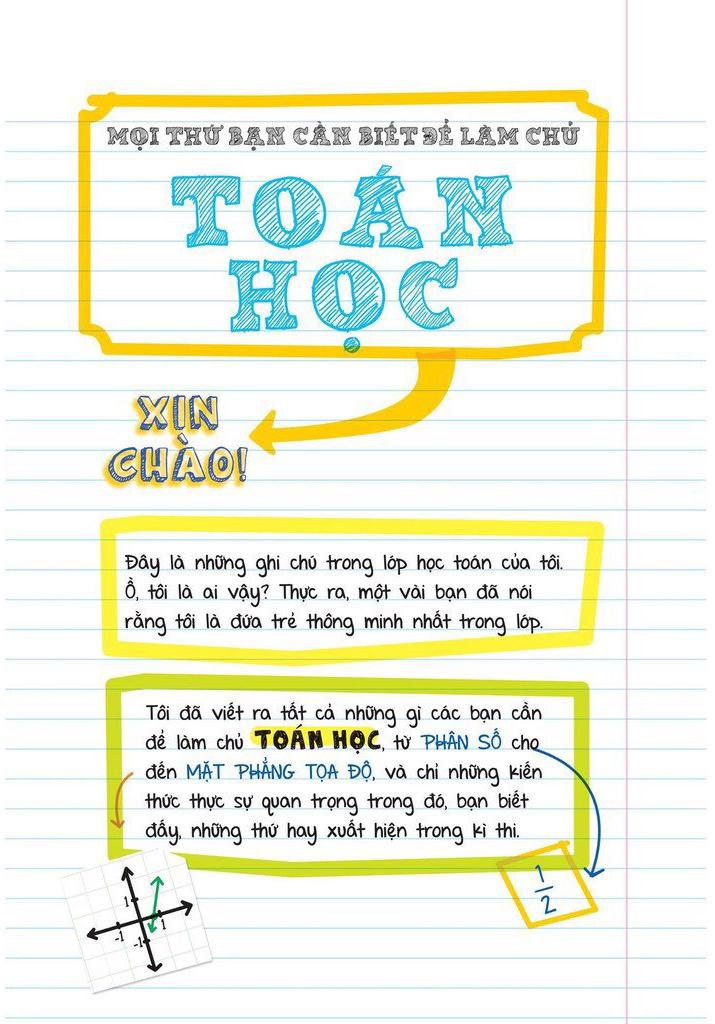 MỌI THỨ BẠN CẦN BIẾT ĐỂ LÀM CHỦ
TOÁN
HỌC
XIN
CHÀO!
Đây là những ghi chú trong lớp học toán của tôi.
Ồ, tôi là ai vậy? Thực ra, một vài bạn đã nói
rằng tôi là đứa trẻ thông minh nhất trong lớp.
Tôi đã viết ra tất cả những gì các bạn cần
để làm chủ TOÁN HỌC, từ PHÂN SỐ cho
đến MẶT PHẲNG TỌA ĐỘ, và chỉ những kiến
thức thực sự quan trọng trong đó, bạn biết
đấy, những thứ hay xuất hiện trong kì thi.
1
-1
1
-1
1
2